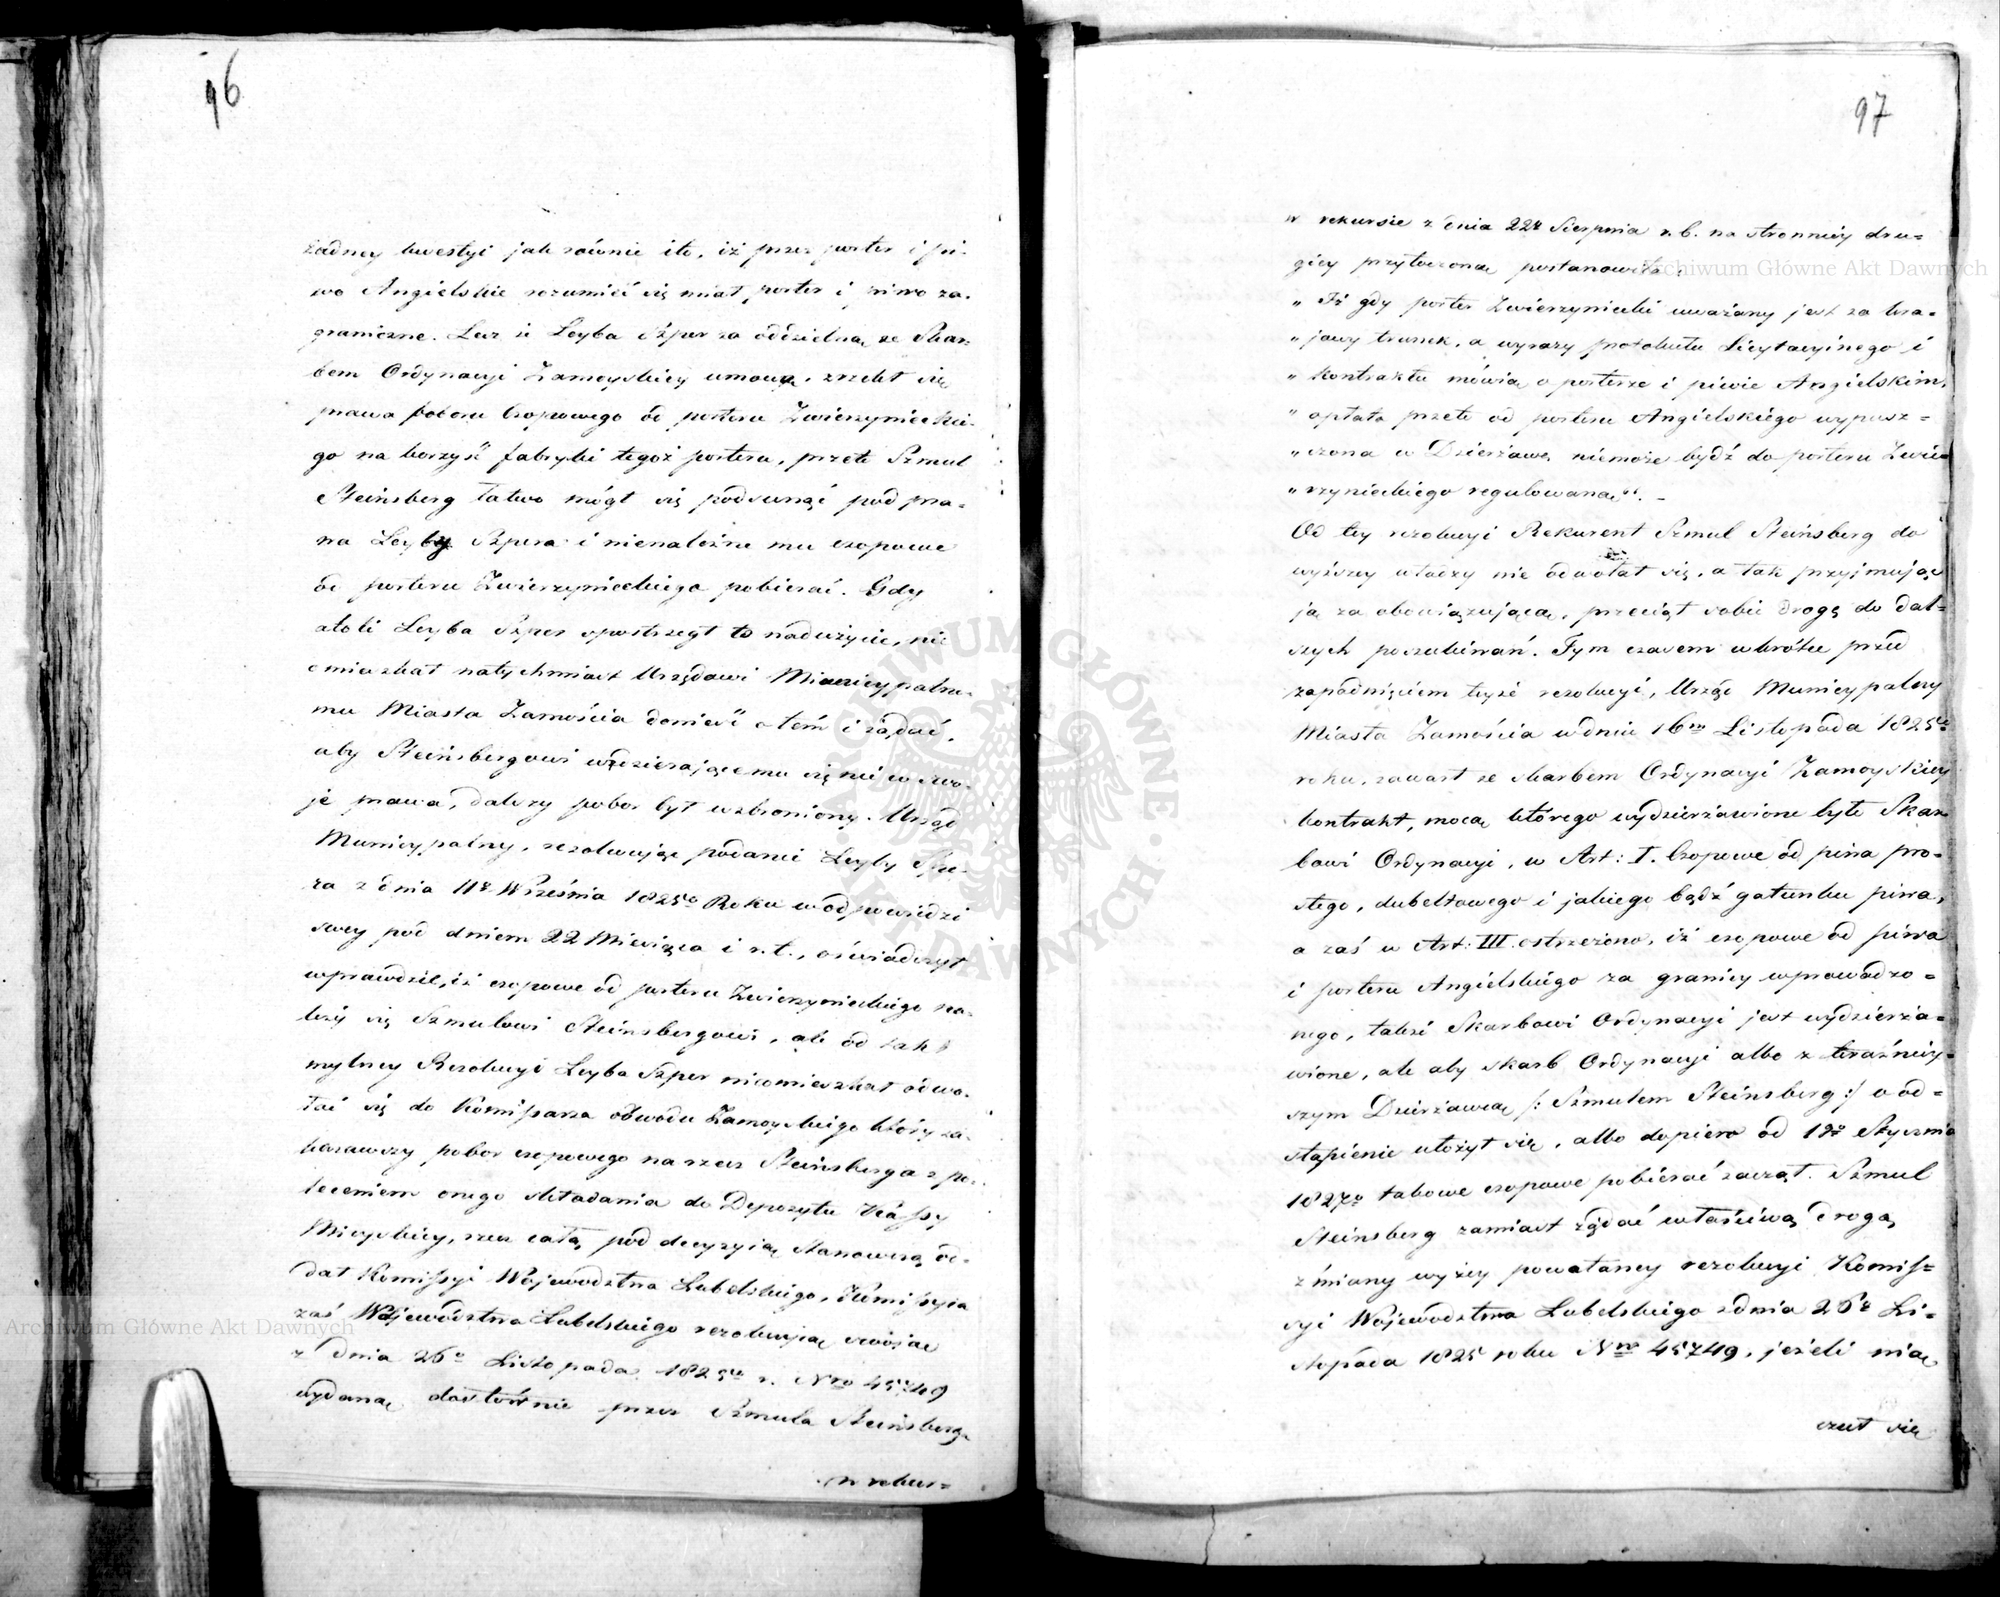 96
żadney kwestyi jak równie i to, iż przez porter i pi-
wo Angielskie rozumieć się miał porter i piwo za-
graniczne. Lecz iż Leyba Szper za oddzielną ze Skar-
bem Ordynacyi Zamoyskiey umową, zrzekł się
prawa poboru czopowego od porteru Zwierzynieckie-
go na korzyść fabryki tegoż porteru, przeto Szmul
Steinsberg łatwo mógł się podsunąć pod pra-
wa Leyby Szpera i nienależne mu czopowe
od porteru Zwierzynieckiego pobierać. Gdy
atoli Leyba Szper spostrzegł to nadużycie, nie
omieszkał natychmiast Urzędowi Municypalne-
mu Miasta Zamościa donieść o tem i żądać,
aby Steinsbergowi wdzierającemu się w swo-
je prawa, dalszy pobor był wzbroniony. Urząd
Municypalny, rezolwując podanie Leyby Szpe-
ra z dnia 11go Września 1825go Roku w odpowiedzi
swey pod dniem 22 Miesiąca i r. t., oświadczył
wprawdzie, iż czopowe od porteru Zwierzynieckiego na-
leży się Szmulowi Steinsbergowi, ale od tak
mylney Rezolucyi Leyba Szper nieomieszkał odwo-
łać się do Kommissarza obwodu Zamoyskiego który za-
kazawszy pobor czopowego na rzecz Steinsberga z po-
leceniem onego składania do Depozytu Kassy
Mieyskiey, rzecz całą pod decyzyią stanowczą od-
dał Komissyi Województwa Lubelskiego, Komissyia
zaś Województwa Lubelskiego rezolucyią swoią
z dnia 26o Listopada 1825go r. Nro 45749
wydaną dosłownie przez Szmula Steinsberga
w rekur=
97
w rekursie z dnia 22go Sierpnia r. b. na stronnicy dru=
giey przytoczoną postanowiła:
„ Iż gdy porter Zwierzyniecki uważany jest za kra=
„ jowy trunek, a wyrazy protokułu Licytacyinego i
„ kontraktu mówią o porterze i piwie Angielskim,
„ opłata przeto od porteru Angielskiego wypusz=
„ czona w Dzierżawę niemoże bydź do porteru Zwie=
„ rzynieckiego regulowaną“. –
Od tey rezolucyi Rekurent Szmul Steinsberg do
wyższey władzy nie odwołał się, a tak przyjmując
ją za obowiązującą, przeciął sobie drogę do dal=
szych poszukiwań. Tym czasem wkrótce przed
zapadnięciem teyże rezolucyi, Urząd Municypalny
Miasta Zamościa w dniu 16m Listopada 1825go
roku, zawarł ze skarbem Ordynacyi Zamoyskiey
kontrakt, mocą którego wydzierżawione było Skar=
bowi Ordynacyi, w Art: I. Czopowe od piwa pro=
stego, dubeltowego i jakiego bądź gatunku piwa,
a zaś w Art: III. ostrzeżono, iż czopowe od piwa
i porteru Angielskiego za granicy wprowadzo=
nego, także Skarbowi Ordynacyi jest wydzierża=
wione, ale aby skarb Ordynacyi albo z teraźniey=
szym Dzierżawcą /: Szmulem Steinsberg :/ o od=
stąpienie ułożył się, albo dopiero od 1go Stycznia
1827go takowe czopowe pobierać zaczął. Szmul
Steinsberg zamiast żądać właściwą drogą
zmiany wyżey powołaney rezolucyi Komiss=
syi Województwa Lubelskiego z dnia 26o Li=
stopada 1825 roku Nro 45749, jeżeli nią
czuł się
Archiwum Główne Akt Dawnych
Archiwum Główne Akt Dawnych
ARCHIWUM GŁÓWNE AKT DAWNYCH